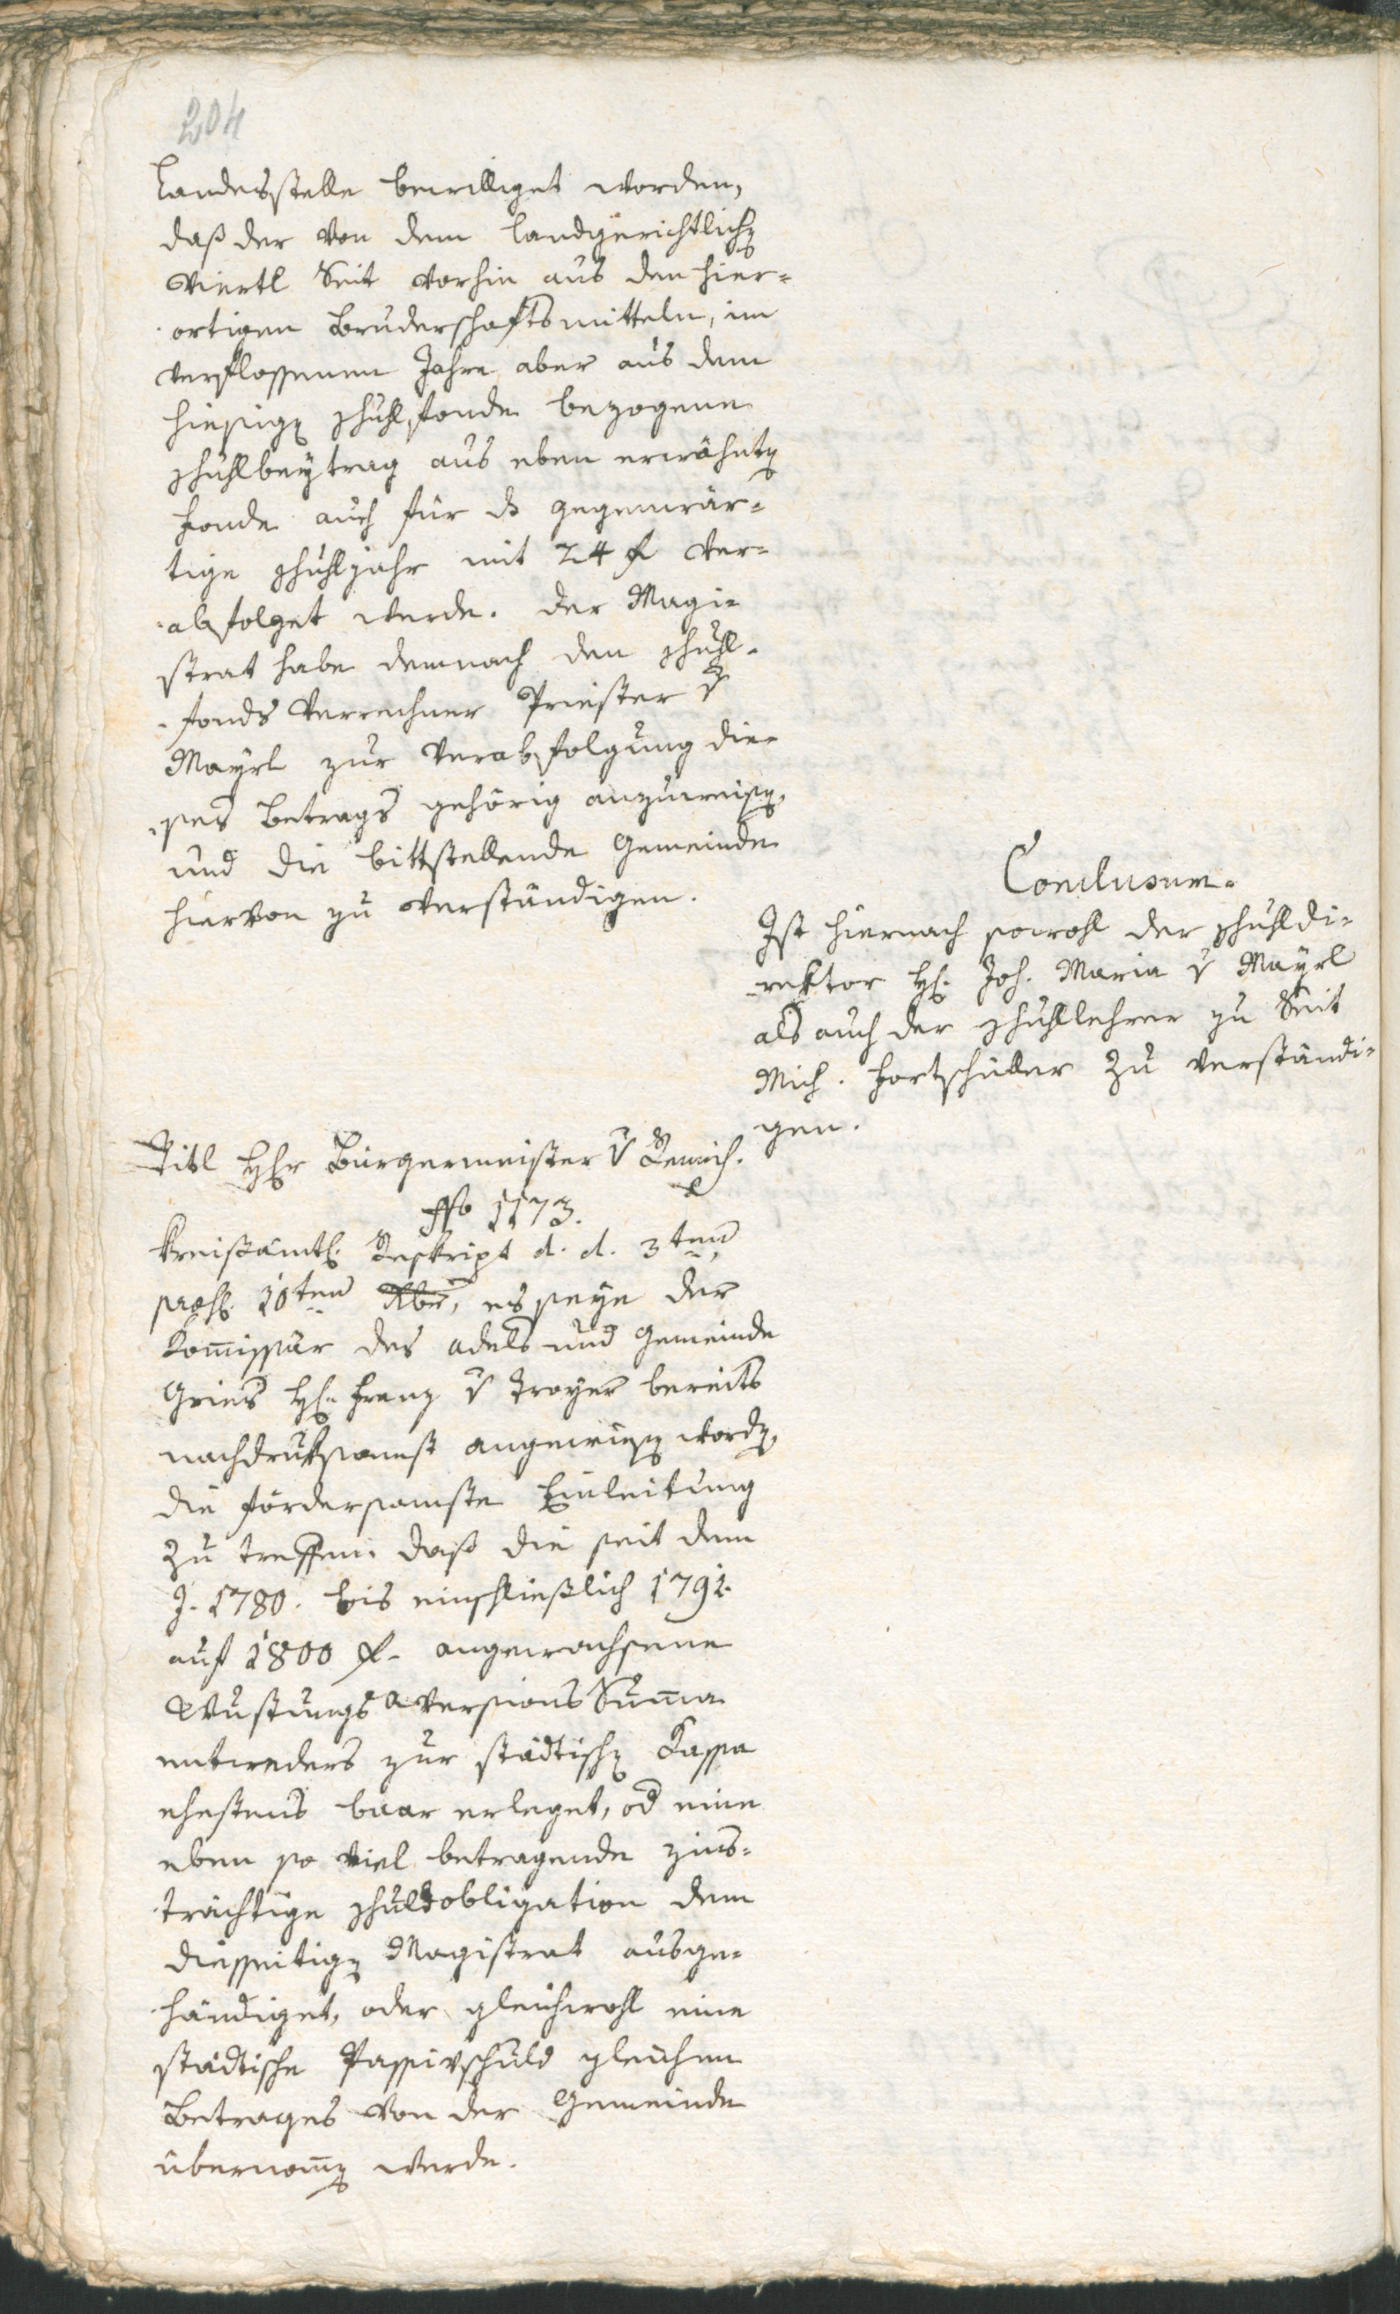 204
Landesstelle bewilliget worden,
daß der von dem Landgerichtlich
Viertl Seit vorhin aus den hier-
ortigen Bruderschaftsmitteln, im
verflossenen Jahre aber aus dem
hiesig Schuhlfonde bezogene
Schuhlbeytrag aus eben erwähnt
Fonde auch für ds gegenwär-
tige Schuhljahr mit 24 f ver-
abfolget werde. Der Magi-
strat habe demnach den Schuhl-
fonds Verrechner Priester v
Mayrl zur Verabfolgung die-
ses Betrags gehörig anzuweis,
und die bittstellende Gemeinde
hiervon zu verständigen.
Conclusum.
Ist hiernach sowohl der Schuhldi-
rektor H. Joh. Maria v Mayrl
als auch der Schuhllehrer zu Seit
Mich. Fortschüller zu verständi-
gen.
Titl Hhr Bürgermeister v
No 1173.
Kreisämtl. Reskript d. d. 3ten
praes. 10ten es seye der
Kommissär des adels und Gemeinde
Gries H. Franz v Troyer bereits
nachdruksamst angewies word,
die fördersamste Einleitung
zu treffen: daß die seit dem
J. 1780. bis einschließlich 1791.
auf 1800 f. angewachsene
Wustungs Aversions Summa
entweders zur städtisch Kassa
ehestens baar erleget, od eine
eben so viel betragende zins-
trächtige Schuldobligation dem
diesseitig Magistrat ausge-
händiget, oder gleichwohl eine
städtische Passivschuld gleichen
Betrages von der Gemeinde
übernomm werde.